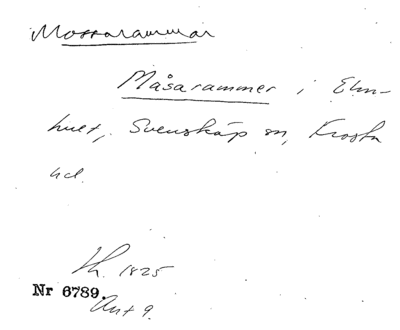 Mossarammar
Måsarammer i Elm-
hult, Svensköp sn, Frosta
hd.
Lh. 1825
Nr 6789.
Ant 9.